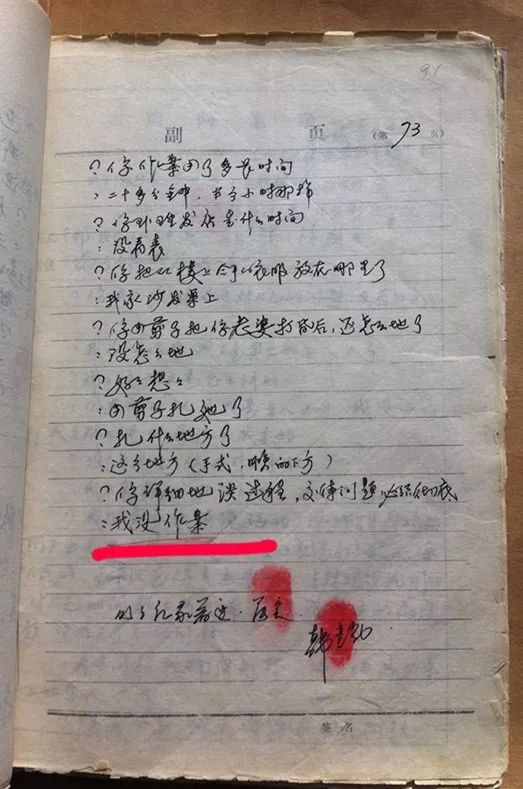 91
副 页 (第 73 页)
？你作案用了多长时间
：二十多分钟，半个小时那样
？你到哇发店是什么时间
：没看表
？你把从楼上拿的衣服放在哪里了
：我家沙发罩上
？你用剪子把你老婆打昏后，还怎么地了
：没怎么地
？好好想想
：用剪子扎她了
？扎什么地方了
：这个地方（手式，喉的下方）
？你详细地谈过程，交待问题必须彻底
：我没作案
以上记录
韩
签名